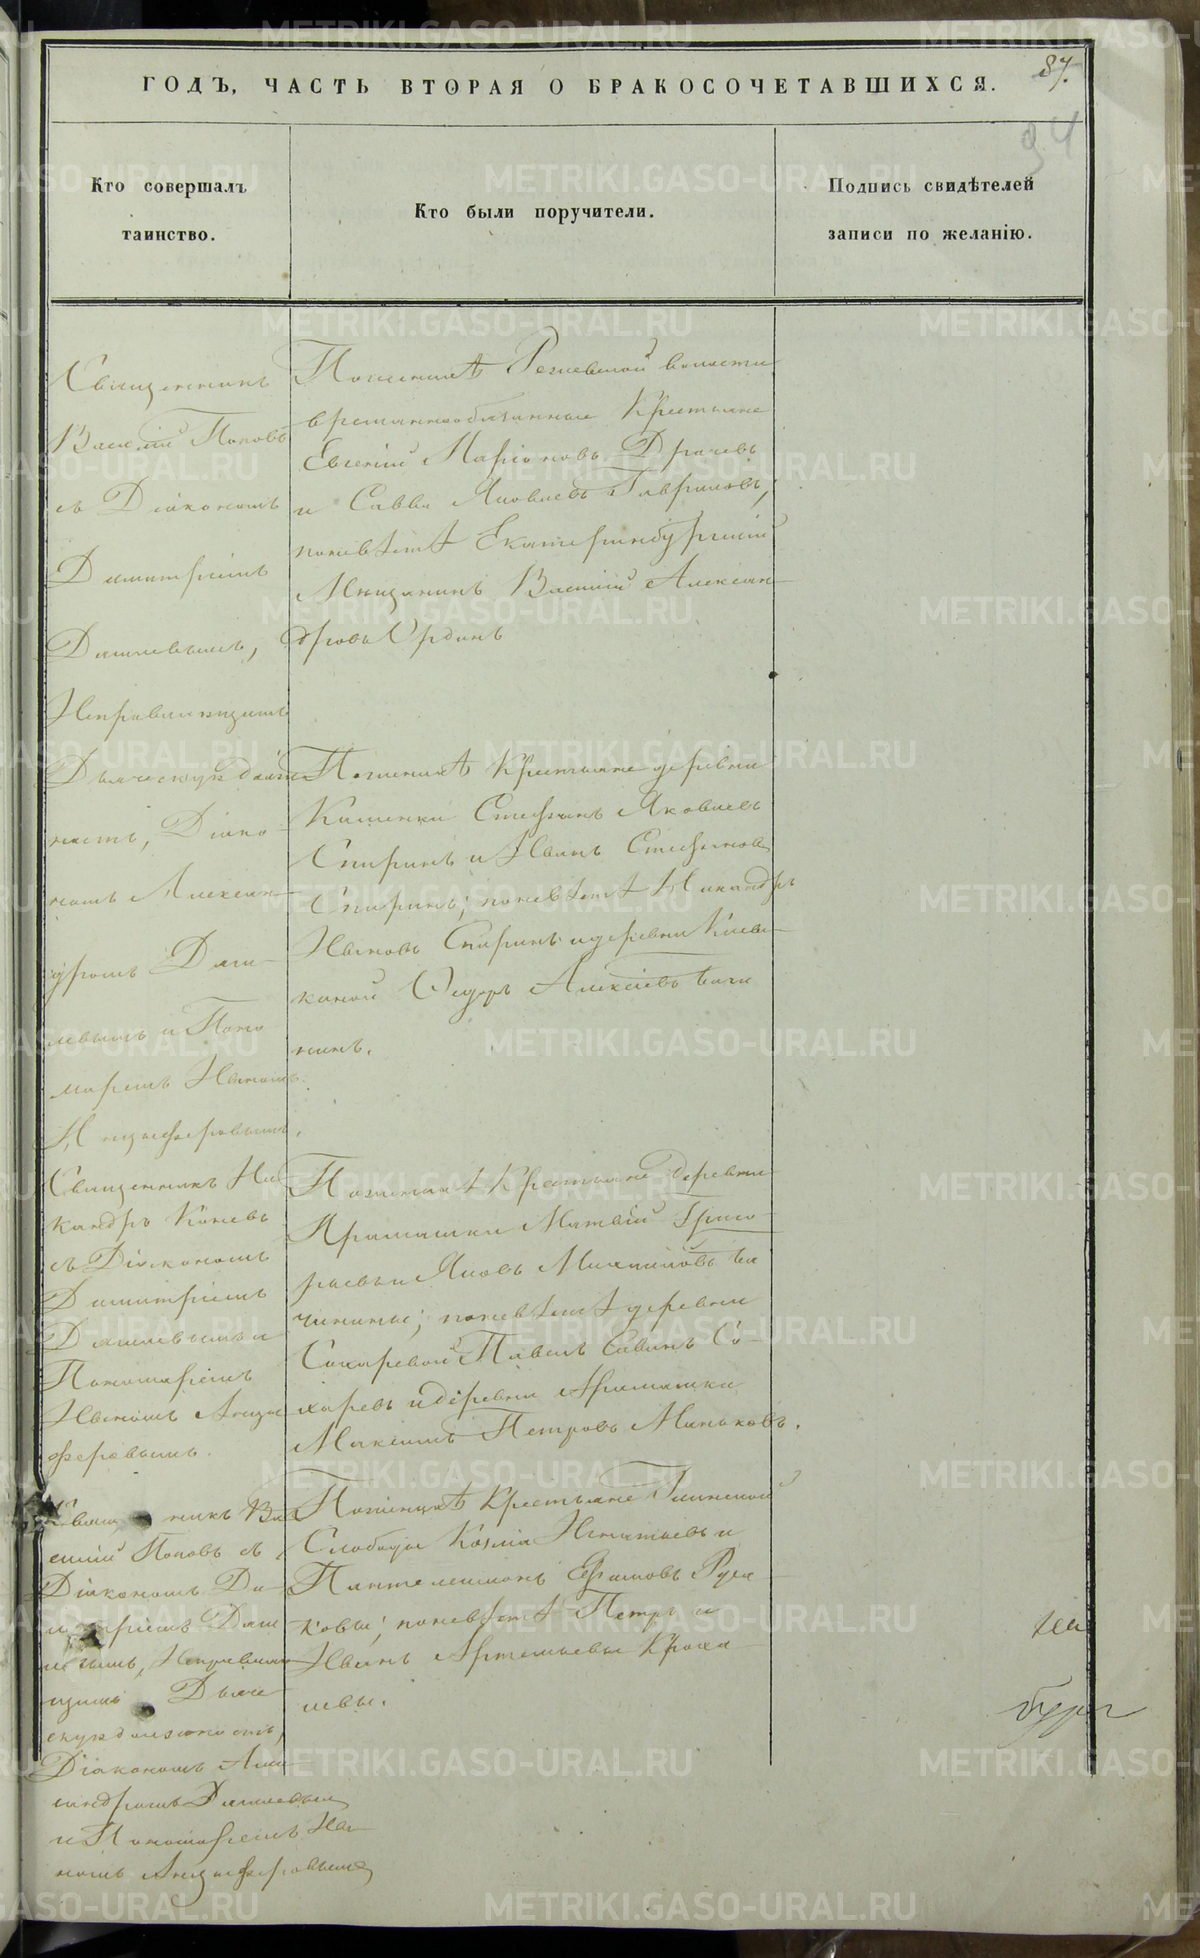 87.
ГОДЪ, ЧАСТЬ ВТОРАЯ О БРАКОСОЧЕТАВШИХСЯ.
94
Кто совершалъ
таинство.
Кто были поручители.
Подпись свидѣтелей
записи по желанію.
Священникъ
Василій Поповъ
съ Діакономъ
Димитріемъ
Дягилевымъ,
Исправляющимъ
Дьяческую долж
ность, Діако
номъ Алексан
дромъ Дяги
левымъ и Поно
маремъ Иваномъ
Анциферовымъ.
По женихѣ Режевской волости
временнообязанные Крестьяне
Евгеній Маріоновъ Драчевъ
и Савва Яковлевъ Гавриловъ,
по невѣстѣ Екатеринбургскій
Мѣщанинъ Василій Алексан
дровъ Ординъ
По женихѣ Крестьяне деревни
Каменки Стефанъ Яковлевъ
Спиринъ и Иванъ Стефановъ
Спиринъ; по невѣстѣ Никандръ
Ивановъ Спиринъ и деревни
Ѳедоръ Алексіевъ
нинъ.
Священникъ Ни
кандръ Коневъ
съ Діакономъ
Димитріемъ
Дягилевымъ и
Пономаремъ
Иваномъ Анци
феровымъ.
По женихѣ Крестьяне деревни
Арамашки Матвѣй Григо
рьевъ и Яковъ Михайловъ
чинины; по невѣстѣ деревни
Сохаревой Павелъ Савинъ Со
харевъ и деревни Арамашки
Максимъ Петровъ Миньковъ.
Священникъ Ва
силій Поповъ съ
Діакономъ Ди
митріемъ Дяги
левымъ, Исправляю
щимъ Дьяче
скую должность,
Діакономъ Алек
сандромъ Дягилевымъ
и Пономаремъ Ива
номъ Анциферовымъ
По женихѣ Крестьяне Глинской
Слободы Козма Игнатьевъ и
Пантелеимонъ Ефимовъ Руса
ковы; по невѣстѣ Петръ и
Иванъ Артемьевы Кроха
левы.
бург
METRIKI.GASO-URAL.RU